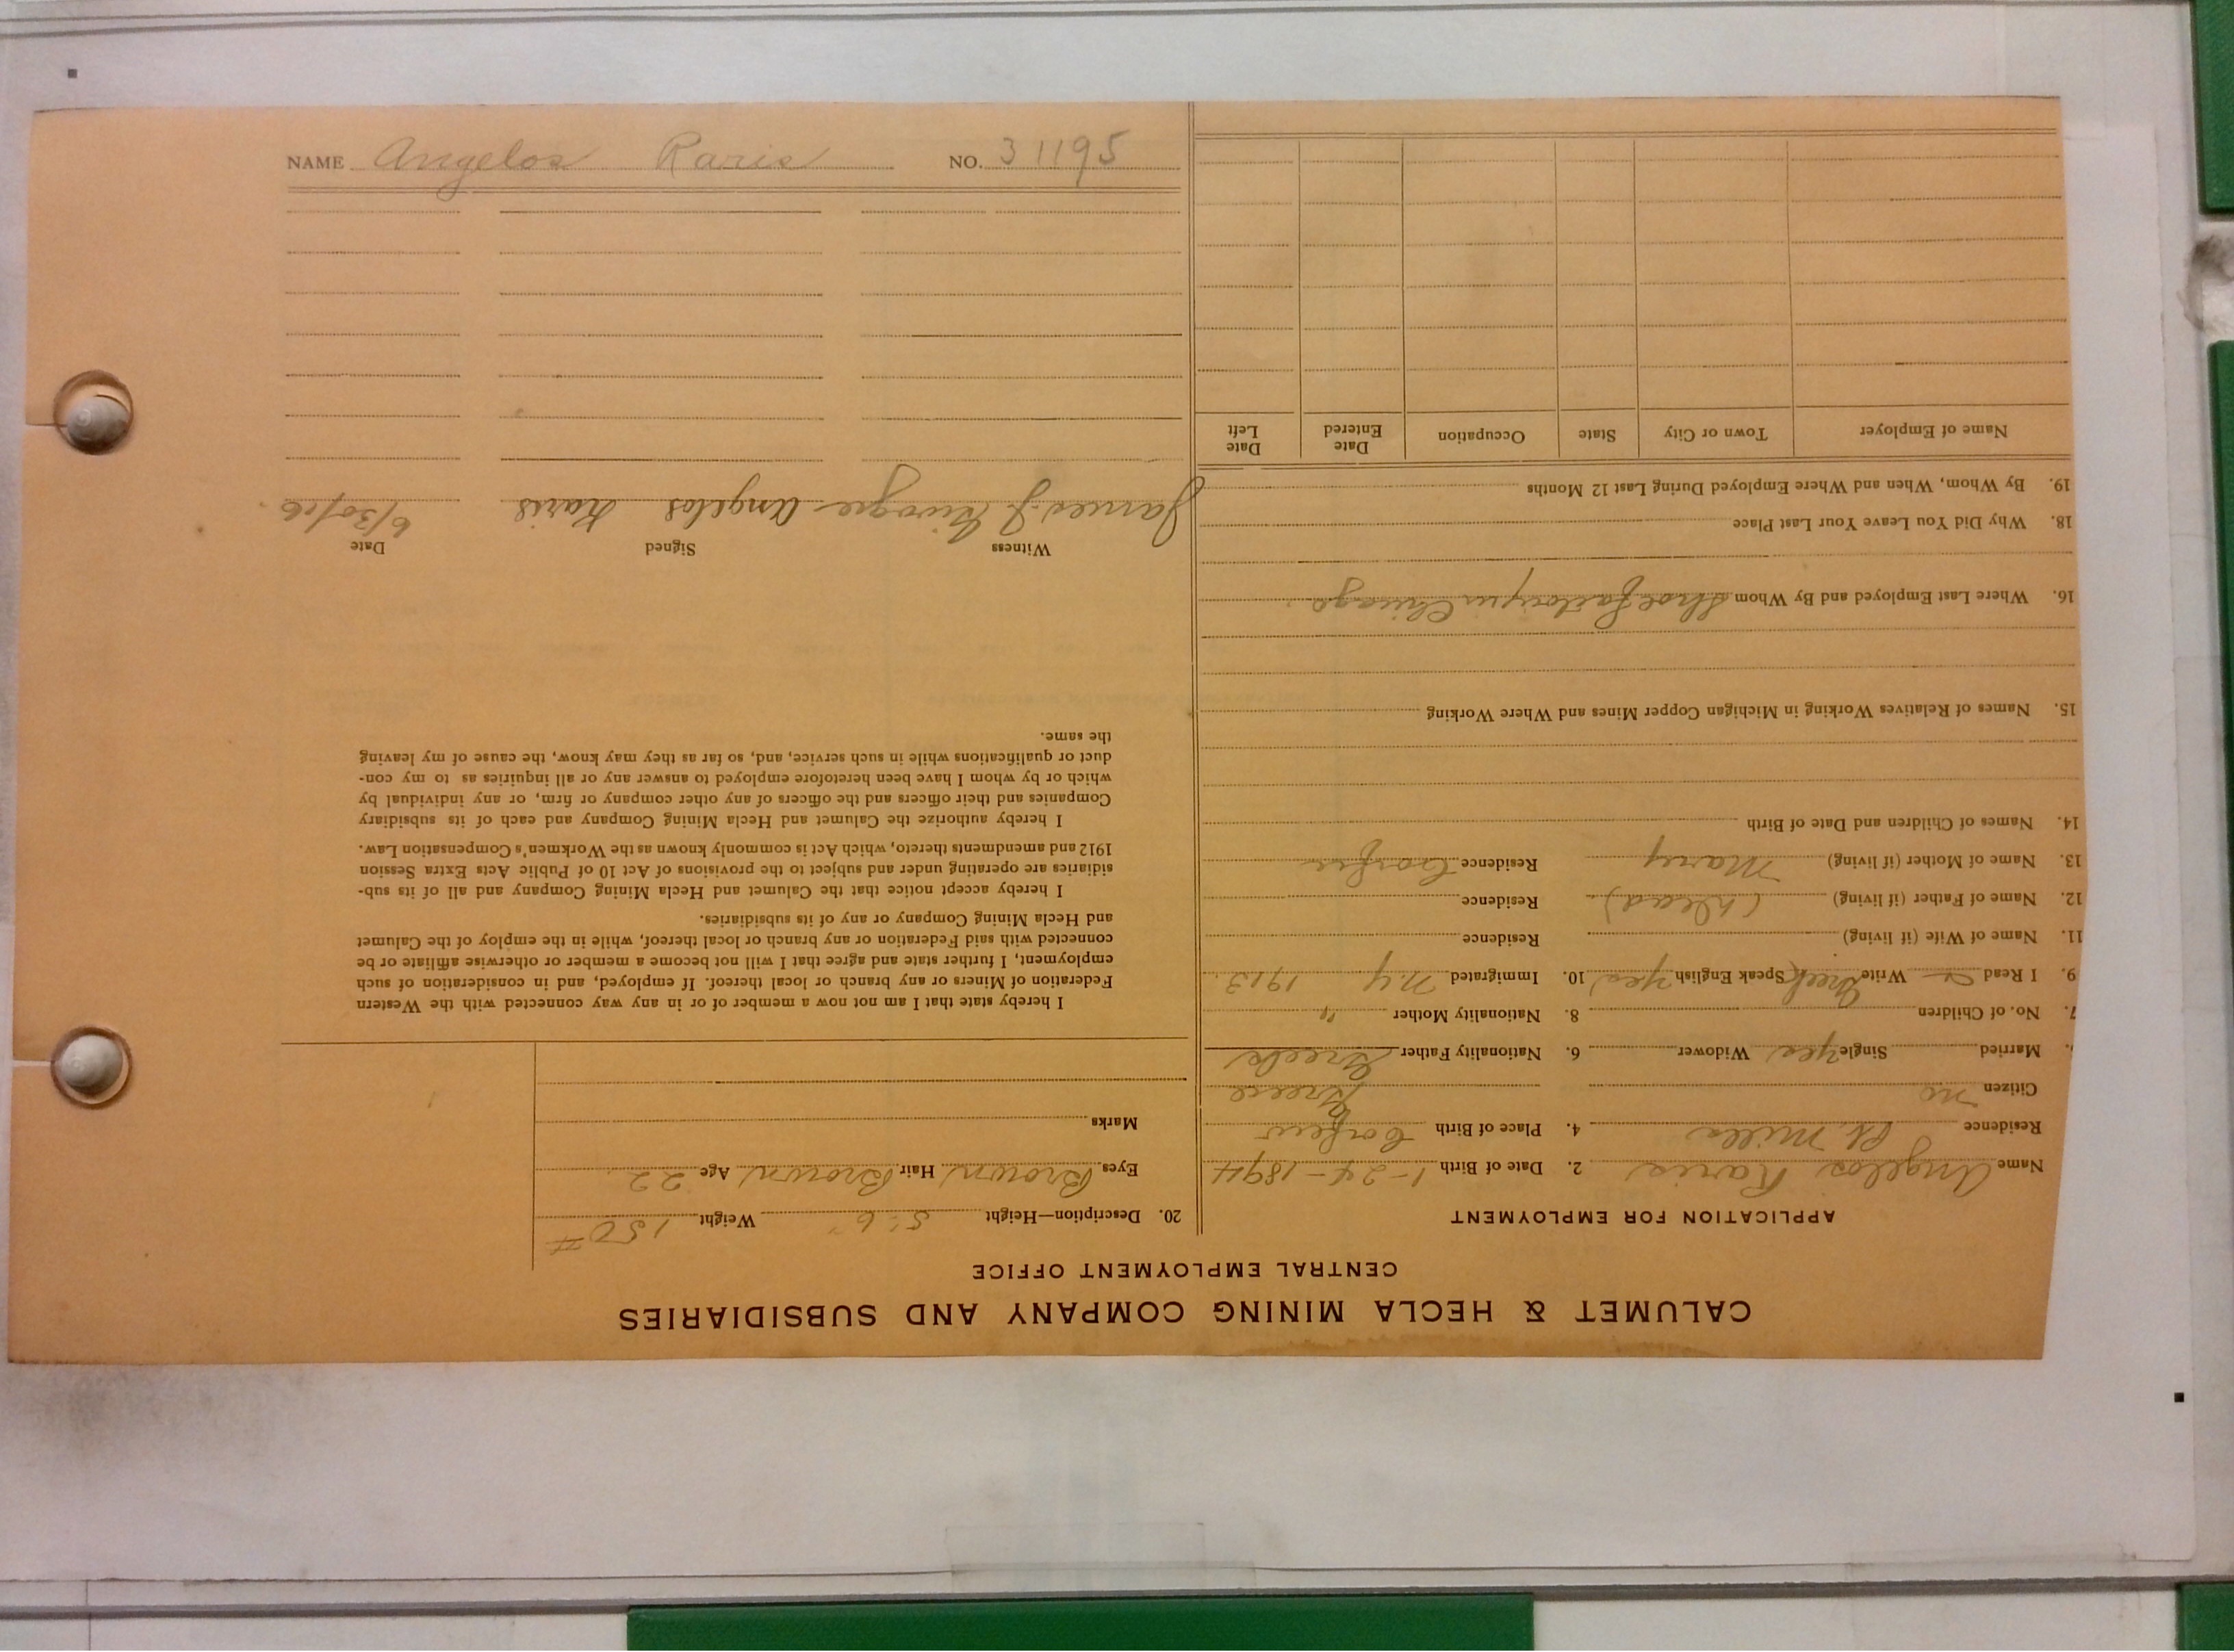 NAME Angelos Raris NO. 31195
CALUMET & HECLA MINING COMPANY AND SUBSIDIARIES
CENTRAL EMPLOYMENT OFFICE
APPLICATION FOR EMPLOYMENT
Name Angelos Raris 2. Date of Birth 1-24-1894
Residence Pt. Mills 4. Place of Birth Corfew
Citizen no Greece
Married Single yes Widower 6. Nationality Father Greek
7. No. of Children 8. Nationality Mother "
9. I Read Write Greek Speak English yes 10. Immigrated N.Y 1913.
11. Name of Wife (if living) Residence
12. Name of Father (if living) (Dead) Residence
13. Name of Mother (if living) Mary Residence Corfew
14. Names of Children and Date of Birth
15. Names of Relatives Working in Michigan Copper Mines and Where Working
16. Where Last Employed and By Whom Shoe factory in Chicago.
18. Why Did You Leave Your Last Place
19. By Whom, When and Where Employed During Last 12 Months
Name of Employer Town or City State Occupation Date Entered Date Left
20. Description—Height 5'6" Weight 150#
Eyes Brown Hair Brown Age 22
Marks
I hereby state that I am not now a member of or in any way connected with the Western
Federation of Miners or any branch or local thereof. If employed, and in consideration of such
employment, I further state and agree that I will not become a member or otherwise affiliate or be
connected with said Federation or any branch or local thereof, while in the employ of the Calumet
and Hecla Mining Company or any of its subsidiaries.
I hereby accept notice that the Calumet and Hecla Mining Company and all of its sub-
sidiaries are operating under and subject to the provisions of Act 10 of Public Acts Extra Session
1912 and amendments thereto, which Act is commonly known as the Workmen's Compensation Law.
I hereby authorize the Calumet and Hecla Mining Company and each of its subsidiary
Companies and their officers and the officers of any other company or firm, or any individual by
which or by whom I have been heretofore employed to answer any or all inquiries as to my con-
duct or qualifications while in such service, and, so far as they may know, the cause of my leaving
the same.
Witness Signed Date
James J. Angelos Karis 6/30/16